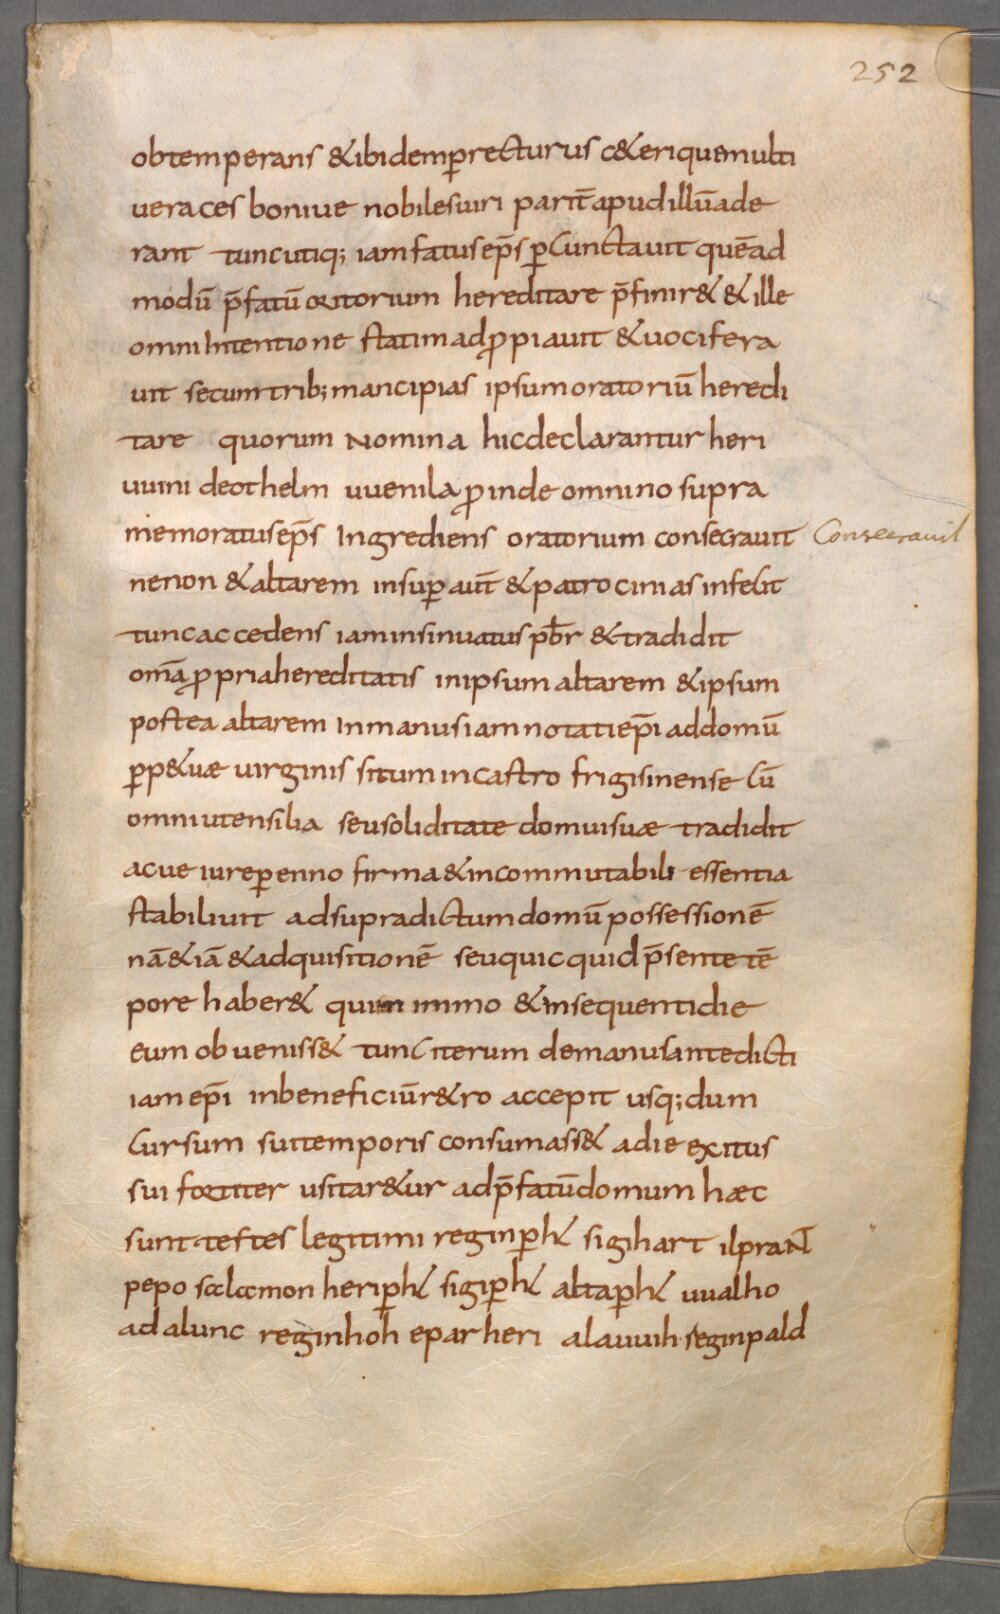 252
obtemperans &ibidemꝑrecturus c&eriquemulti
ueraces boniue nobilesuiri parit̄apudillūade
rant tuncutiq; iamfatusep̄s ꝑcunctauit quēad
modū p̄fatū oratorium hereditare p̄finir& &ille
omniintentione statimadꝓpiauit &uocifera
uit secumtrib;mancipias ipsumoratoriū heredi
tare quorum Nomina hicdeclarantur heri
uuini deothelm uuenila ꝓinde omnino supra
memoratusep̄s Ingrediens oratorium consecrauit
Consecrauit
necnon &altarem insuꝑ aut̄ &patrocinias insebit
tuncaccedens iaminsinuatus pb̄r &tradidit
om̄a ꝓpriahereditatis inipsum altarem &ipsum
postea altarem Inmanusiamnotatiep̄i addomū
ꝑp&uæ uirginis situm incastro frigisinense cū
omniutensilia seusoliditate domuisuæ tradidit
acue iureꝑenno firma&incommutabili essentia
stabiliuit adsupradictumdomū possessionē
nā&iā &adquisitionē seuquicquid p̄sente tē
pore haber& quin immo &insequentidie
eum obueniss& tunc iterum demanusantedicti
iam ep̄i inbeneficiūr&ro accepit usq;dum
cursum suitemporis consumass& adie exitus
sui fortiter usitar&ur adp̄fatūdomum hæc
sunt testes legitimi reginꝑh̄ sigihart ilpraN̄
pepo salamon heriꝑh̄ sigiꝑh̄ altaꝑh̄ uualho
adalunc reginhoh eparheri alauuih reginpald